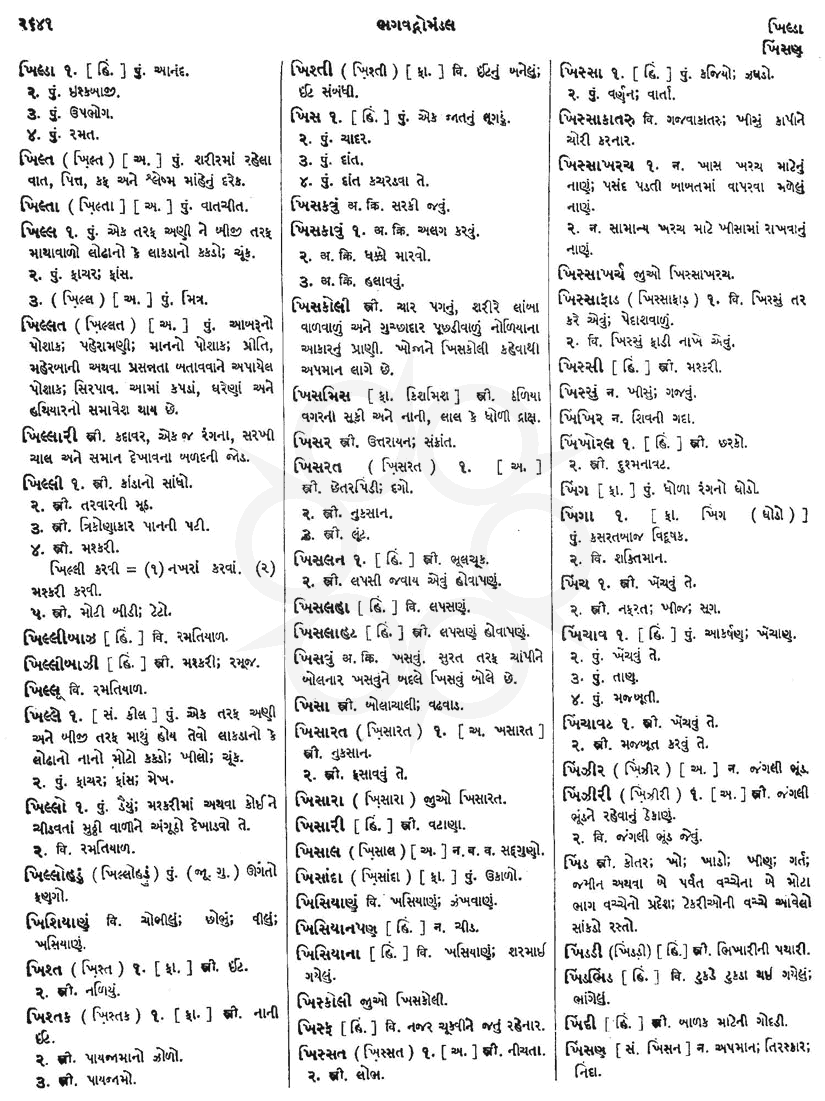 ૨૬૪૧
ભગવદ્ગોમંડલ
ખિલ્ડા
ખિંસણુ
ખિલ્ડા ૧. [ હિં. ] પું. આનંદ.
૨. પું. ઇશ્કબાજી.
૩. પું. ઉપભોગ.
૪. પું. રમત.
ખિલ્ત ( ખ઼િલ્ત ) [ અ. ] પું. શરીરમાં રહેલા
વાત, પિત્ત, કફ અને શ્લેષ્મ માંહેનું દરેક.
ખિલ્તા ( ખ઼િલ્તા ] [ અ. ] પું. વાતચીત.
ખિલ્લ ૧. પું. એક તરફ અણી ને બીજી તરફ
માથાવાળો લોઢાનો કે લાકડાનો કકડો; ચૂંક.
૨. પું. ફાચર; ફાંસ.
૩. ( ખ઼િલ્લ ) [ અ. ] પું. મિત્ર.
ખિલ્લત ( ખ઼િલ્લત ) [ અ. ] પું. આબરૂનો
પોશાક; પહેરામણી; માનનો પોશાક; પ્રીતિ,
મહેરબાની અથવા પ્રસન્નતા બતાવવાને અપાયેલ
પોશાક; સિરપાવ. આમાં કપડાં, ઘરેણાં અને
હથિયારનો સમાવેશ થાય છે.
ખિલ્લારી સ્ત્રી. કદાવર, એક જ રંગના, સરખી
ચાલ અને સમાન દેખાવના બળદની જોડ.
ખિલ્લી ૧. સ્ત્રી. કાંડાનો સાંધો.
૨. સ્ત્રી. તરવારની મૂઠ.
૩. સ્ત્રી. ત્રિકોણાકાર પાનની પટી.
૪. સ્ત્રી. મશ્કરી.
ખિલ્લી કરવી = (૧) નખરાં કરવાં. (૨)
મશ્કરી કરવી.
૫. સ્ત્રી. મોટી બીડી; ટેટો.
ખિલ્લીબાઝ [ હિં. ] વિ. રમતિયાળ.
ખિલ્લીબાઝી [ હિં. ] સ્ત્રી. મશ્કરી; રમૂજ.
ખિલ્લૂ વિ. રમતિયાળ.
ખિલ્લે ૧. [ સં. કીલ ] પું. એક તરફ અણી
અને બીજી તરફ માથું હોય તેવો લાકડાનો કે
લોઢાનો નાનો મોટો કકડો; ખીલો; ચૂંક.
૨. પું. ફાચર; ફાંસ; મેખ.
ખિલ્લો ૧. પું. ડૈયું; મશ્કરીમાં અથવા કોઈને
ચીડવતાં મુઠ્ઠી વાળીને અંગૂઠો દેખાડવો તે.
૨. વિ. રમતિયાળ.
ખિલ્લોહડું (ખિલ્લોહડું) પું. (જૂ. ગુ.) ઊગતો
ફણગો.
ખિશિયાણું વિ. ચોભીલું; છોભું; વીલું;
ખસિયાણું.
ખિશ્ત ( ખ઼િશ્ત ) ૧. [ ફા. ] સ્ત્રી. ઈંટ.
૨. સ્ત્રી. નળિયું.
ખિશ્તક ( ખ઼િશ્તક ) ૧. [ ફા. ] સ્ત્રી. નાની
ઈંટ.
૨. સ્ત્રી. પાયજામાનો ઝોળો.
૩. સ્ત્રી. પાયજામો.
ખિશ્તી ( ખ઼િશ્તી ) [ ફા. ] વિ. ઈંટનું બનેલું;
ઈંટ સંબંધી.
ખિસ ૧. [ હિં. ] પું. એક જાતનું લૂગડું.
૨. પું. ચાદર.
૩. પું. દાંત.
૪. પું. દાંત કચરડવા તે.
ખિસકવું અ. ક્રિ. સરકી જવું.
ખિસકાવું ૧. અ. ક્રિ. અલગ કરવું.
૨. અ. ક્રિ. ધક્કો મારવો.
૩. અ. ક્રિ. હલાવવું.
ખિસકોલી સ્ત્રી. ચાર પગનું, શરીરે લાંબા
વાળવાળું અને ગુચ્છાદાર પૂછડીવાળું નોળિયાના
આકારનું પ્રાણી. ખોજાને ખિસકોલી કહેવાથી
અપમાન લાગે છે.
ખિસમિસ [ ફા. કિશમિશ ] સ્ત્રી. ઠળિયા
વગરની સૂકી અને નાની, લાલ કે ધોળી દ્રાક્ષ.
ખિસર સ્ત્રી. ઉત્તરાયન; સંક્રાંત.
ખિસરત ( ખ઼િસરત ) ૧. [ અ. ]
સ્ત્રી. છેતરપિંડી; દગો.
૨. સ્ત્રી. નુકસાન.
૩. સ્ત્રી. લૂંટ.
ખિસલન ૧. [ હિં. ] સ્ત્રી. ભૂલચૂક.
૨. સ્ત્રી. લપસી જવાય એવું હોવાપણું.
ખિસલહા [ હિં. ] વિ. લપસણું.
ખિસલાહટ [ હિં. ] સ્ત્રી. લપસણું હોવાપણું.
ખિસવું અ. ક્રિ. ખસવું. સુરત તરફ ચાંપીને
બોલનાર ખસવુંને બદલે ખિસવું બોલે છે.
ખિસા સ્ત્રી. બોલાચાલી; વઢવાડ.
ખિસારત ( ખ઼િસારત ) ૧. [ અ. ખસારત ]
સ્ત્રી. નુકસાન.
૨. સ્ત્રી. ફસાવવું તે.
ખિસારા ( ખ઼િસારા ) જુઓ ખિસારત.
ખિસારી [ હિં. ] સ્ત્રી. વટાણા.
ખિસાલ ( ખ઼િસાલ ) [ અ. ] ન. બ. વ. સદ્ગુણો.
ખિસાંદા ( ખ઼િસાંદા ) [ ફા. ] પું. ઉકાળો.
ખિસિયાણું વિ. ખસિયાણું; ઝંખવાણું.
ખિસિયાનપણુ [ હિં. ] ન. ચીડ.
ખિસિયાના [ હિં. ] વિ. ખસિયાણું; શરમાઈ
ગયેલું.
ખિસ્કોલી જુઓ ખિસકોલી.
ખિસ્ફ [ હિં. ] વિ. નજર ચૂકવીને જતું રહેનાર.
ખિસ્સત ( ખ઼િસ્સત ) ૧. [ અ. ] સ્ત્રી. નીચતા.
૨. સ્ત્રી. લોભ.
ખિસ્સા ૧. [ હિં. ] પું. કજિયો; ઝઘડો.
૨. પું. વર્ણન; વાર્તા.
ખિસ્સાકાતરુ વિ. ગજવાકાતરુ; ખીસું કાપીને
ચોરી કરનાર.
ખિસ્સાખરચ ૧. ન. ખાસ ખરચ માટેનું
નાણું; પસંદ પડતી બાબતમાં વાપરવા મળેલું
નાણું.
૨. ન. સામાન્ય ખરચ માટે ખીસામાં રાખવાનું
નાણું.
ખિસ્સાખર્ચ જુઓ ખિસ્સાખરચ.
ખિસ્સાફાડ ( ખિસ્સાફાડ઼ ) ૧. વિ. ખિસ્સું તર
કરે એવું; પેદાશવાળું.
૨. વિ. ખિસ્સું ફાડી નાખે એવું.
ખિસ્સી [ હિં. ] સ્ત્રી. મશ્કરી.
ખિસ્સું ન. ખીસું; ગજવું.
ખિંખિર ન. શિવની ગદા.
ખિંખોરલ ૧. [ હિં. ] સ્ત્રી. છરકો.
૨. સ્ત્રી. દુશ્મનાવટ.
ખિંગ [ ફા. ] પું. ધોળા રંગનો ઘોડો.
ખિંગા ૧. [ ફા. ખિંગ ( ઘોડો ) ]
પું. કસરતબાજ વિદૂષક.
૨. વિ. શક્તિમાન.
ખિંચ ૧. સ્ત્રી. ખેંચવું તે.
૨. સ્ત્રી. નફરત; ખીજ; સૂગ.
ખિંચાવ ૧. [ હિં. ] પું. આકર્ષણ; ખેંચાણ.
૨. પું. ખેંચવું તે.
૩. પું. તાણ.
૪. પું. મજબૂતી.
ખિંચાવટ ૧. સ્ત્રી. ખેંચવું તે.
૨. સ્ત્રી. મજબૂત કરવું તે.
ખિંઝીર ( ખ઼િંઝીર ) [ અ. ] ન. જંગલી ભૂંડ.
ખિંઝીરી ( ખ઼િંઝીરી ) ૧. [ અ. ] સ્ત્રી. જંગલી
ભૂંડને રહેવાનું ઠેકાણું.
૨. વિ. જંગલી ભૂંડ જેવું.
ખિંડ સ્ત્રી. કોતર; ખો; ખાડો; ખીણ; ગર્ત;
જમીન અથવા બે પર્વત વચ્ચેના બે મોટા
ભાગ વચ્ચેનો પ્રદેશ; ટેકરીઓની વચ્ચે આવેલો
સાંકડો રસ્તો.
ખિંડડી (ખિંડડ઼ી) [ હિં. ] સ્ત્રી. ભિખારીની પથારી.
ખિંડભિંડ [ હિં. ] વિ. ટુકડે ટુકડા થઈ ગયેલું;
ભાંગેલું.
ખિંદી [ હિં. ] સ્ત્રી. બાળક માટેની ગોદડી.
ખિંસણુ [ સં. ખિંસન ] ન. અપમાન; તિરસ્કાર;
નિંદા.